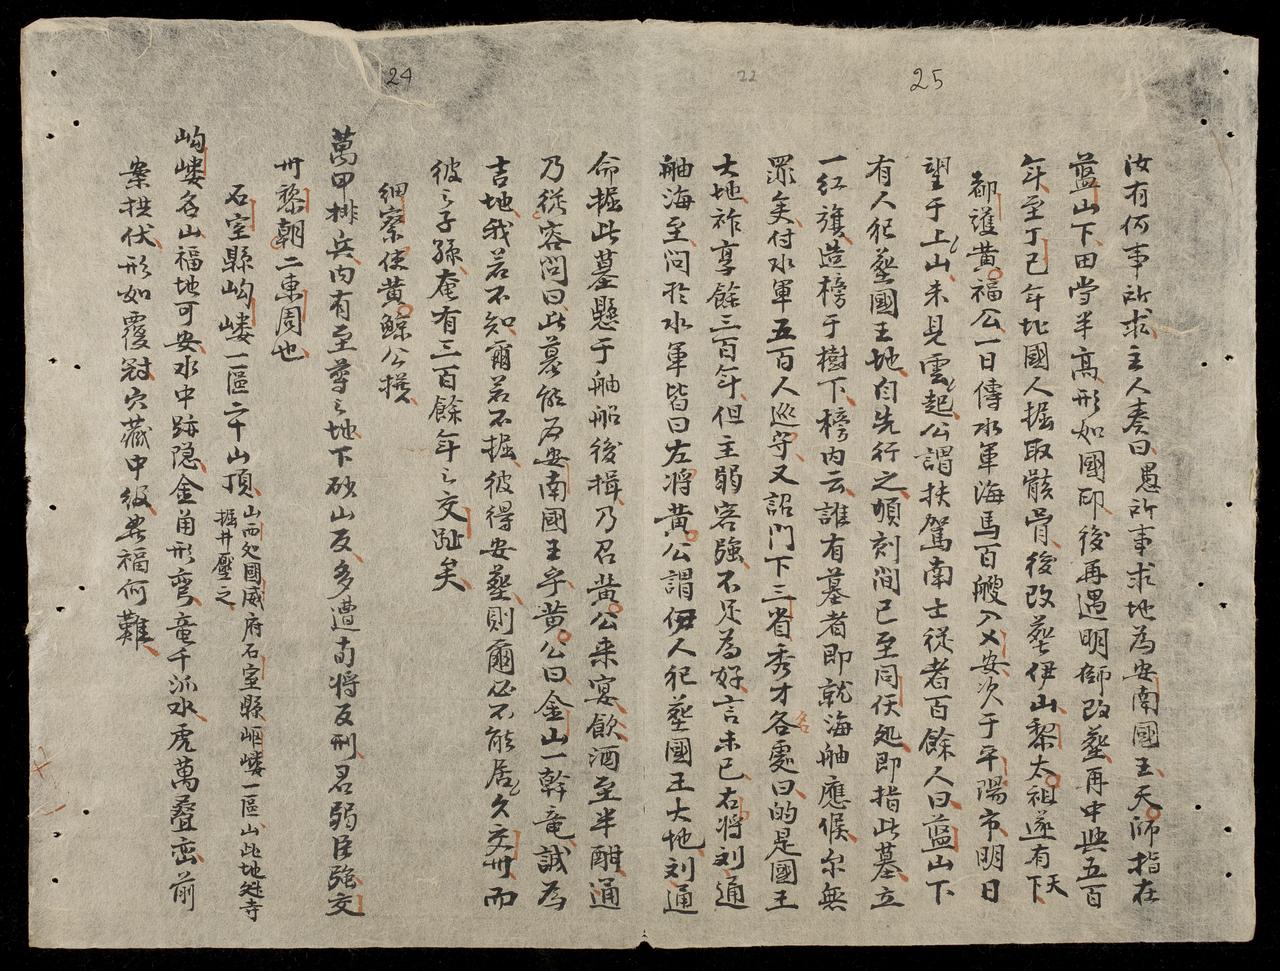 25
22
24
汝有何事所求主人奏曰愚所事求地為安南國王天師指在
藍山下田畄半高形如國印後再遇明師改塟再中興五百
年至丁巳年北國人掘取骸骨後改塟伊山黎太祖遂有天下
都護黃福公一日傳水軍海馬百艘入乂安次于平陽市明日
望于上山未見雲起公謂扶駕南士從者百餘人曰藍山下
有人犯塟國王地自先行之頃刻間已至同伕処即指此墓立
一紅旗造榜于樹下榜內云誰有墓者即就海舳應候尔無
罪矣付水軍五百人巡守又詔門下三省秀才各處曰的是國王
大地祚享餘三百年但主弱客強不足為好言未已右将刘通
舳海至問於水軍皆曰左将黃公謂伊人犯塟國王大地刘通
命掘此墓懸于舳船後揖乃召黃公来宴飲酒至半酣通
乃從容問曰此墓能為安南國王乎黃公曰金山一幹竜誠為
吉地我若不知爾若不掘彼得安塟則爾必不能居久交州而
彼之子孫奄有三百餘年之交趾矣
細察使黃鯨公撰
萬甲排兵內有至尊之地下砂山反多遭右将反刑君弱臣強交
州黎朝二東周也
石室縣岣嶁一區二千山頂山西処國威府石室縣岖嶁一區山此地姓寺掘井壓之
岣嶁名山福地可安水中跡隐金甬形弯竜千派水虎萬疊峦前
案拱伏形如覆冠穴藏中級安福何難